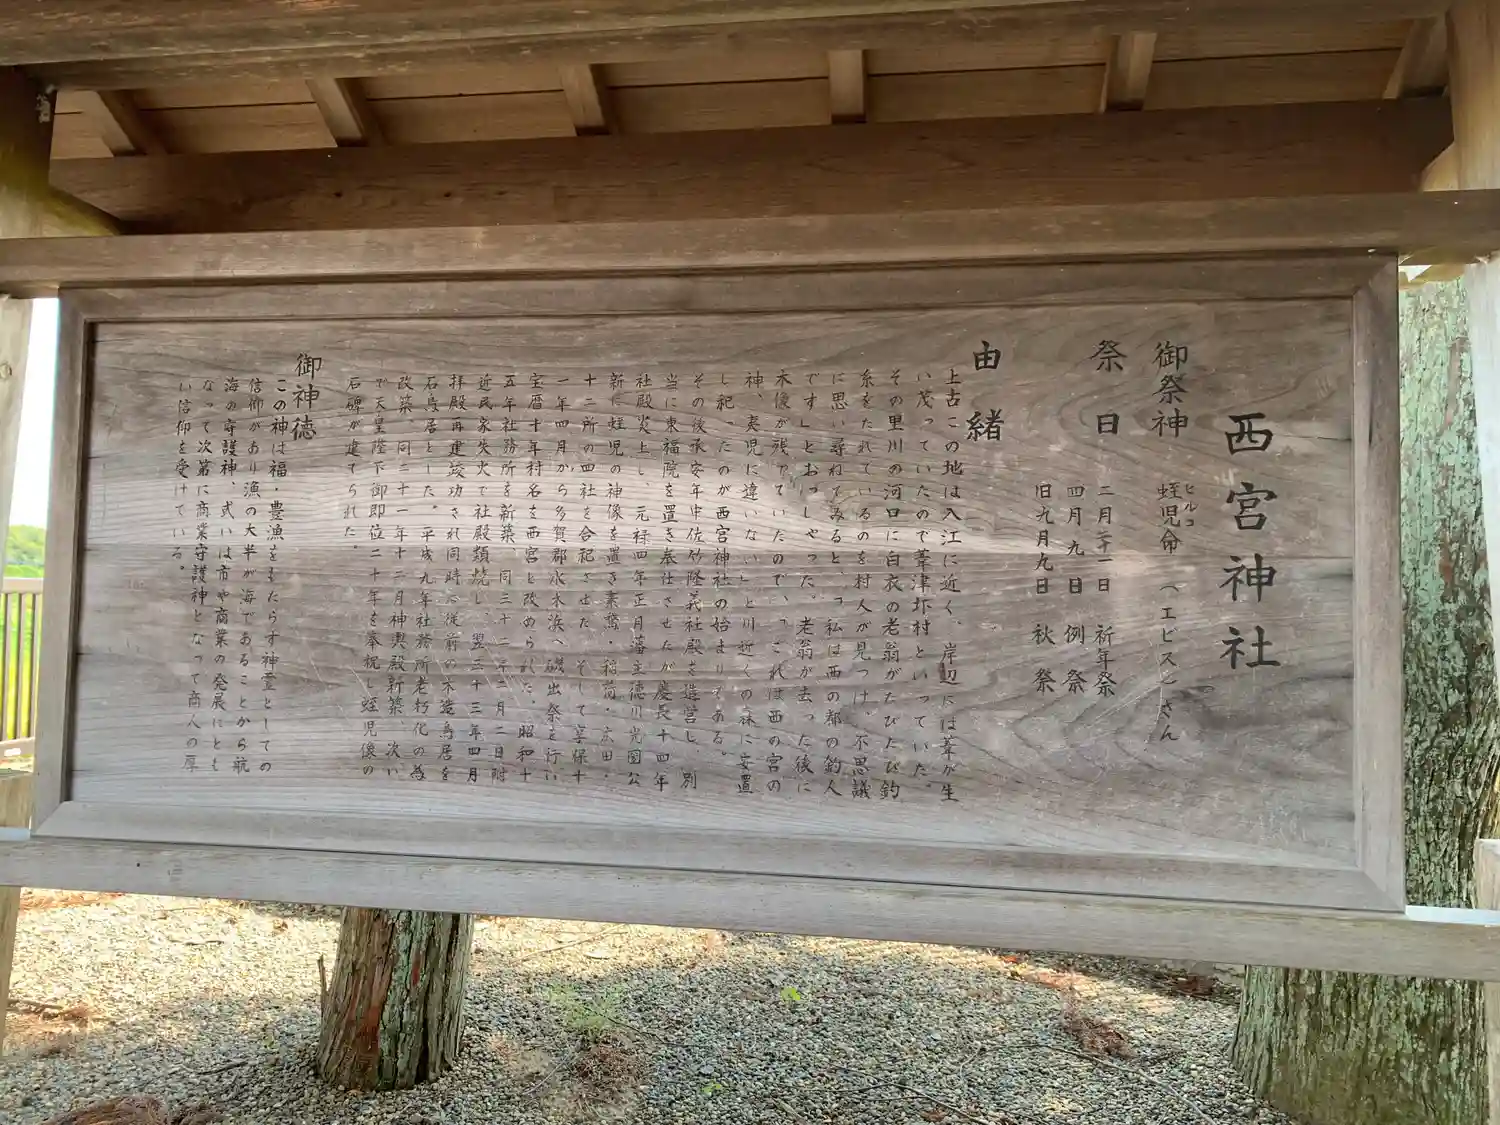 西宮神社
御祭神 蛭児命 (エビスさん)
ヒルコ
祭日 二月二十一日 祈年祭
四月九日 例祭
旧九月九日 秋祭
由緒
上古この地は入江に近く、岸辺には葦が生
い茂っていたので葦津圷村といっていた。
その里川の河口に白衣の老翁がたびたび釣
糸をたれているのを村人が見つけ、不思議
に思い尋ねてみると、「私は西の都の釣人
です」とおっしゃった。老翁が去った後に
木像が残っていたので、「これは西の宮の
神、夷児に違いない」と川近くの森に安置
し祀ったのが西宮神社の始まりである。
その後承安年中佐竹隆義社殿を造営し、別
当に東福院を置き奉仕させたが慶長十四年
社殿炎上し、元禄四年正月藩主徳川光圀公
新に蛭児の神像を置き素鵞・稲荷・太田・
十二所の四社を合祀させた。そして享保十
一年四月から多賀郡水木浜へ磯出祭を行い
宝暦十年村名を西宮と改められた。昭和十
五年社務所を新築、同三十二年二月二日附
近民家失火で社殿類焼し、翌三十三年四月
拝殿再建竣功され同時に従前の木造鳥居を
石鳥居とした。平成九年社務所老朽化の為
改築、同二十一年十二月神輿殿新築、次い
で天皇陛下御即位二十年を奉祝し蛭児像の
石碑が建てられた。
御神徳
この神は福・豊漁をもたらす神霊としての
信仰があり漁の大半が海であることから航
海の守護神、或いは市や商業の発展にとも
なって次第に商業守護神となって商人の厚
い信仰を受けている。